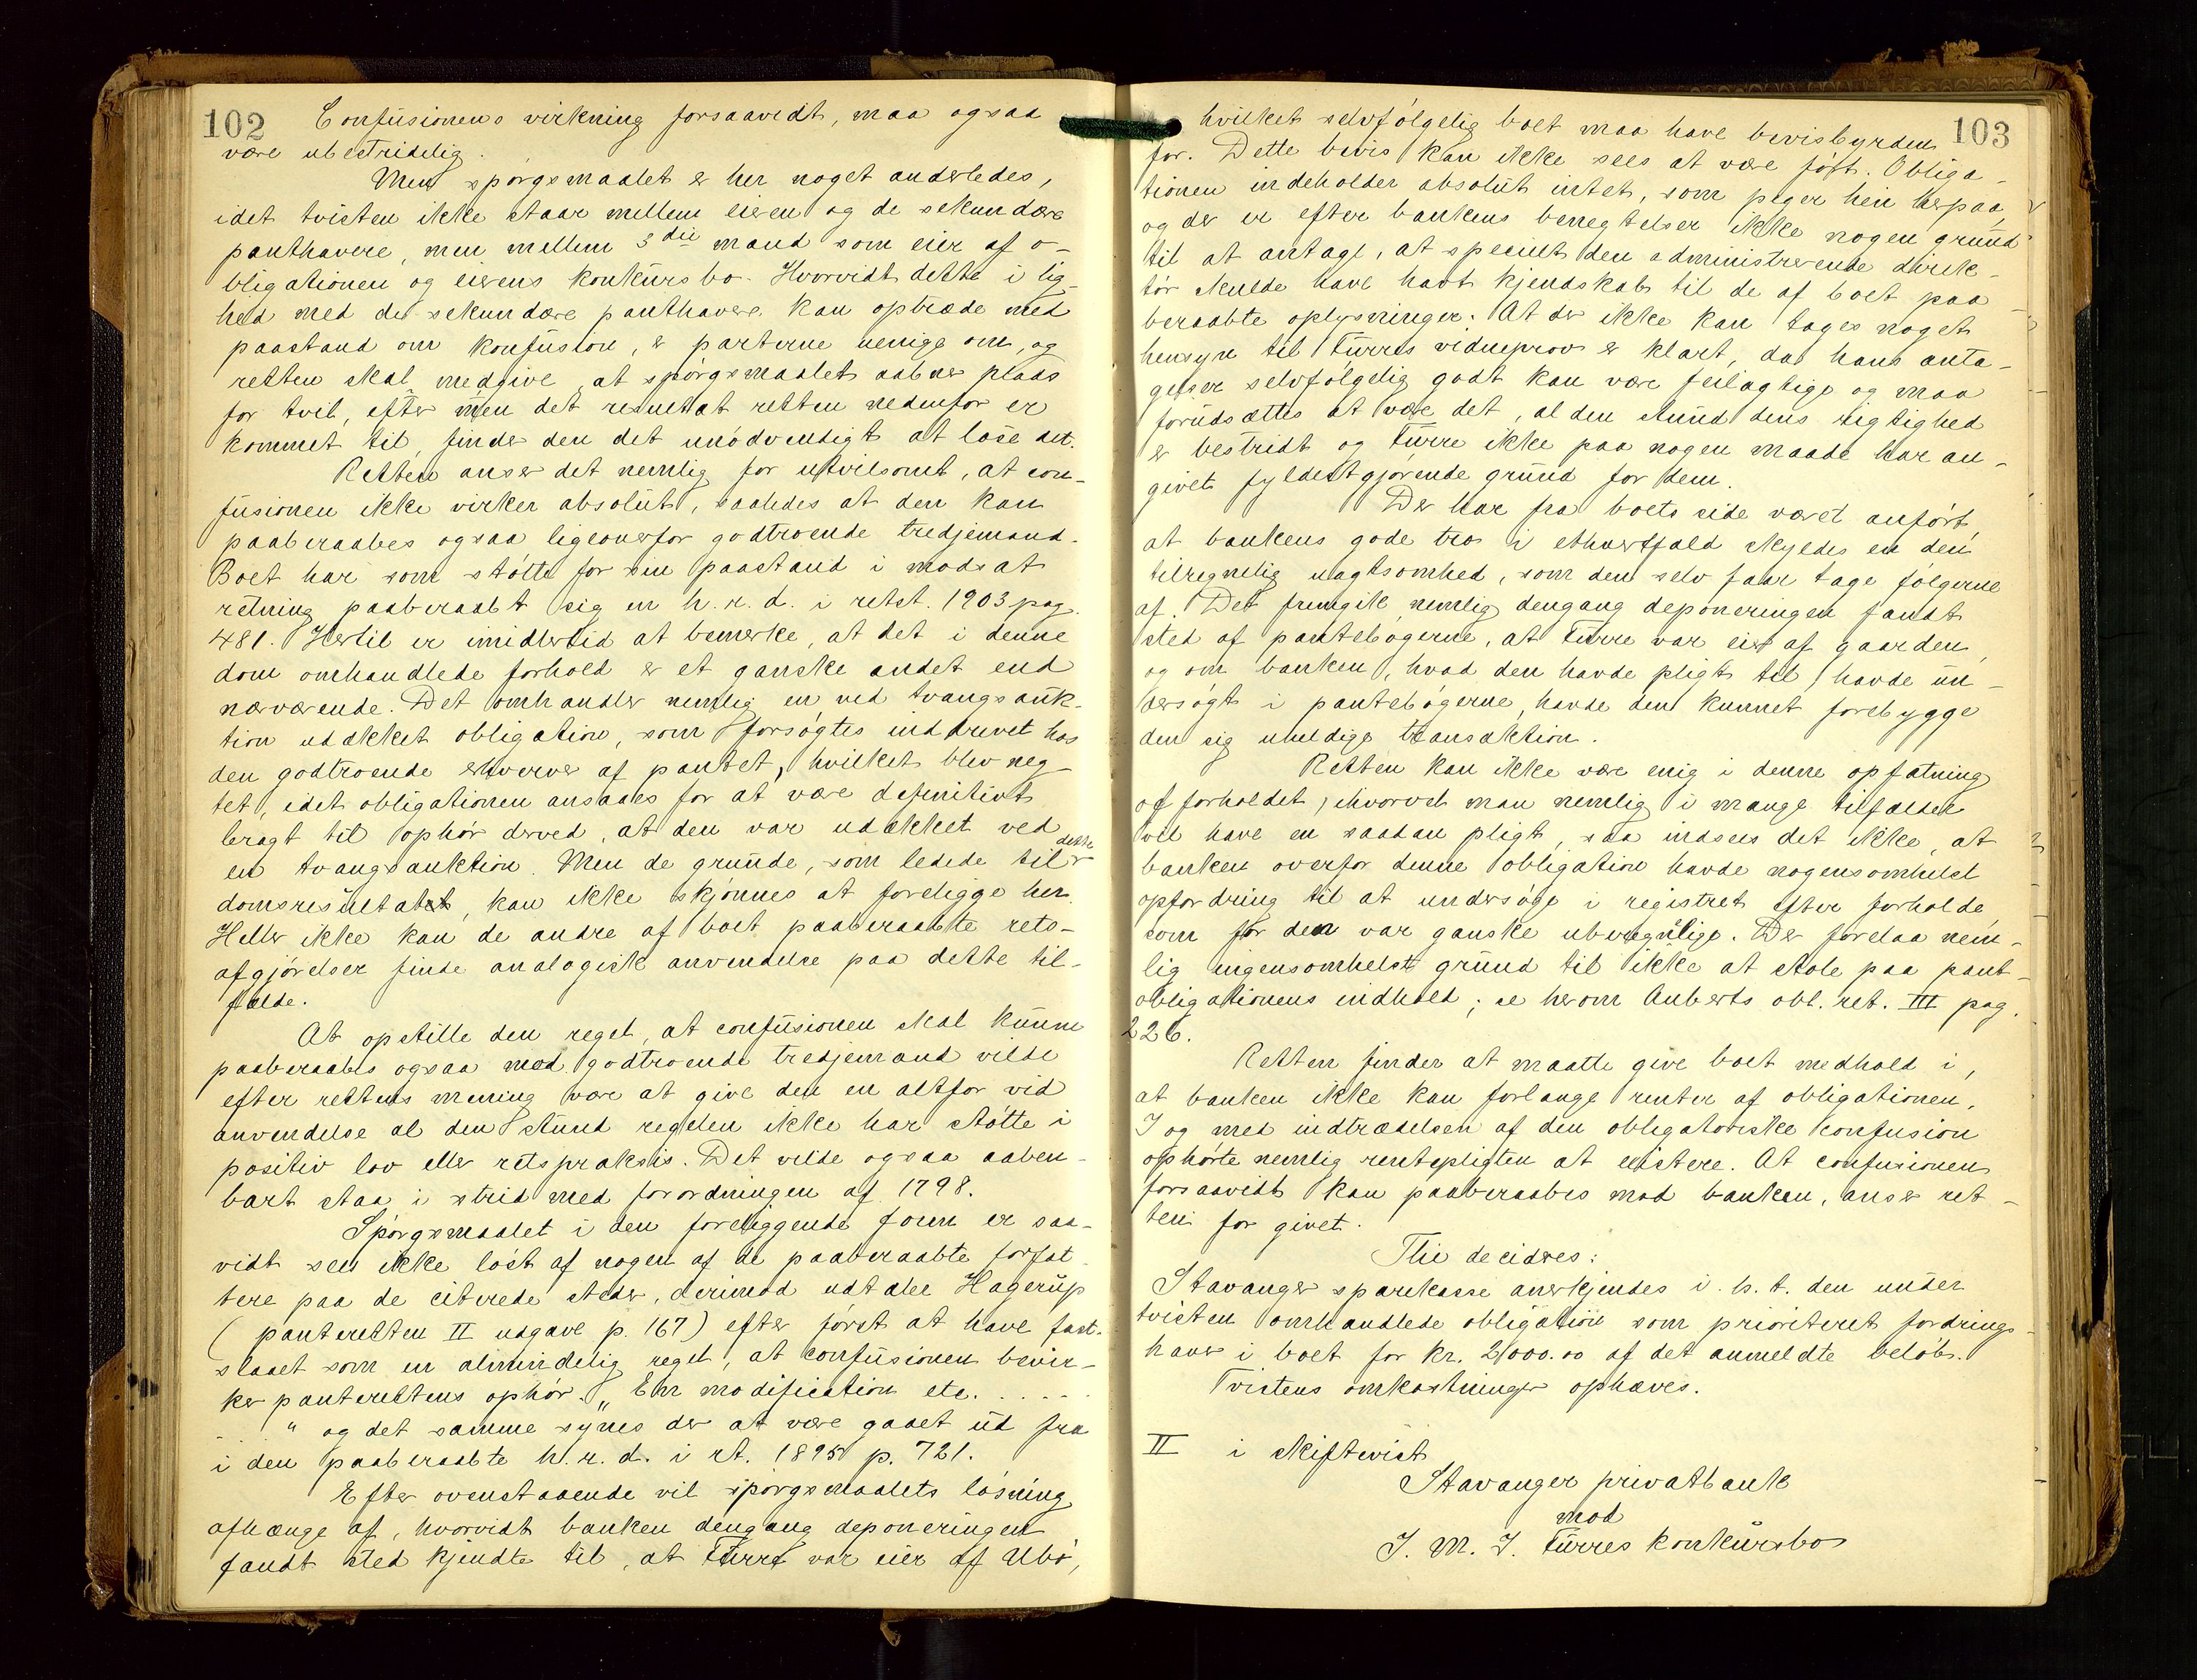 102
Confusionens virkning forsaavidt, maa ogsaa
være ubestridelig.
Men spörgsmaalet er her noget anderledes,
idet tvisten ikke staar mellem eieren og de sekundære
panthavere, men mellem 3die mand som eier af o-
bligationen og eierens konkursbo. Hvorvidt dette i lig-
hed med de sekundære panthavere kan optræde med
paastand om konfusion, er parterne uenige om, og
retten skal medgive, at spörgsmaalet aabner plads
for tvil, efter men det resultat retten nedenfor er
kommet til, finder den det unödvendigt at löse det.
Retten anser det nemlig for utvilsomt, at con-
fusionen ikke virker absolut, saaledes at den kan
paaberaabes ogsaa ligeoverfor godtroende tredjemand.
Boet har som stötte for sin paastand i modsat
retning paaberaabt sig en h.r.d. i retst. 1903 pag.
481. Hertil er imidlertid at bemerke, at det i denne
dom omhandlede forhold er et ganske andet end
nærværende. Det omhandler nemlig en ved tvangsauk-
tion udækket obligation, som forsögtes inddrevet hos
den godtroende erhverver af pantet, hvilket blev neg-
tet, idet obligationen ansaaes for at være definitivt
bragt til ophör derved, at den var udækket ved
en tvangsauktion. Men de grunde, som ledede til dette
domsresultatet, kan ikke skjönnes at foreligge her.
Heller ikke kan de andre af boet paaberaabte rets-
afgjörelser finde analogisk anvendelse paa dette til-
fælde.
At opstille den regel, at confusionen skal kunne
paaberaabes ogsaa mod godtroende tredjemand vilde
efter rettens mening være at give den en altfor vid
anvendelse al den stund regelen ikke har stötte i
positiv lov eller retspraksis. Det vilde ogsaa aaben-
bart staa i strid med forordningen af 1798.
Spörgsmaalet i den foreliggende form er saa-
vidt sees ikke löst af nogen af de paaberaabte forfat-
tere paa de citerede steder, derimod udtaler Hagerup
(panteretten II udgave p. 167) efter först at have fast-
slaaet som en almindelig regel, at confusionen bevir-
ker panterettens ophör. „Em modification etc. . . . . .
. . " og det samme synes der at være gaaet ud fra
i den paaberaabte h.r.d. i rt. 1895 p. 721.
Efter ovenstaaende vil spörgsmaalets lösning
afhænge af, hvorvidt banken dengang deponeringen
fandt sted kjendte til, at Türre var eier af Ubö,
103
hvilket selvfölgelig boet maa have bevisbyrden
for. Dette bevis kan ikke sees at være fört. Obliga-
tionen indeholder absolut intet, som peger hen herpaa,
og der er efter bankens benegtelser ikke nogen grund
til at antage, at specielt den administrerende direk-
tör skulde have havt kjendskab til de af boet paa-
beraabte oplysninger. At der ikke kan tages noget
hensyn til Türres vidneprov er klart, da hans anta-
gelser selvfölgelig godt kan være feilagtige og maa
forudsættes at være det, al den stund dens rigtighed
er bestridt og Türre ikke paa nogen maade har an-
givet fyldestgjörende grund for dem.
Der har fra boets side været anfört,
at bankens gode tro i ethvertfald skyldes en den
tilregnelig uagtsomhed, som den selv faar tage fölgerne
af. Det fremgik nemlig dengang deponeringen fandt
sted af pantebögerne, at Türre var eier af gaarden,
og om banken, hvad den havde pligt til, havde un-
dersögt i pantebögerne, havde den kunnet forebygge
den sig uheldige transaktion.
Retten kan ikke være enig i denne opfatning
af forholdet, ihvorvel man nemlig i mange tilfælder
vil have en saadan pligt, saa indsees det ikke, at
banken overfor denne obligation havde nogensomhelst
opfordring til at undersöge i registret efter forholde,
som for den var ganske uberegnlige. Der forelaa nem-
lig ingensomhelst grund til ikke at stole paa pant-
obligationens indhold; se herom Auberts obl. ret. III pag.
226.
Retten finder at maatte give boet medhold i,
at banken ikke kan forlange renter af obligationen.
I og med indtrædelsen af den obligatoriske confusion
ophörte nemlig rentepligten at existere. At confusionen
forsaavidt kan paaberaabes mod banken, anser ret-
ten for givet.
Thi decideres:
Stavanger sparekasse anerkjendes i h.t. den under
tvisten omhandlede obligation som prioriteret fordrings-
haver i boet for kr. 21000.00 af det anmeldte belöb.
Tvistens omkostninger ophæves.
II i skiftetvist
Stavanger privatbank
mod
J. M. J. Türres konkursbo